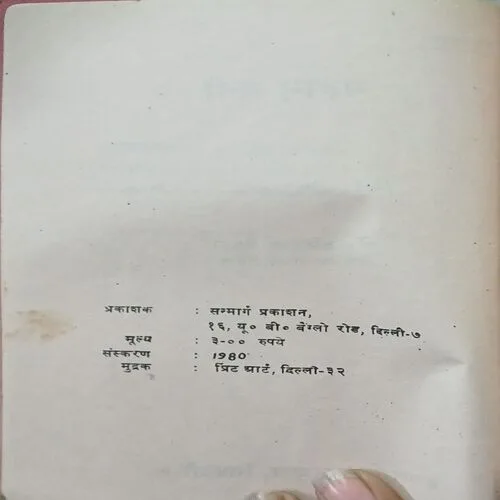 प्रकाशक : सन्मार्ग प्रकाशन,
१६, यू० बी० बैंग्लो रोड, दिल्ली-७
मूल्य : ३-०० रुपये
संस्करण : 1980
मुद्रक : प्रिंट आर्ट, दिल्ली-३२